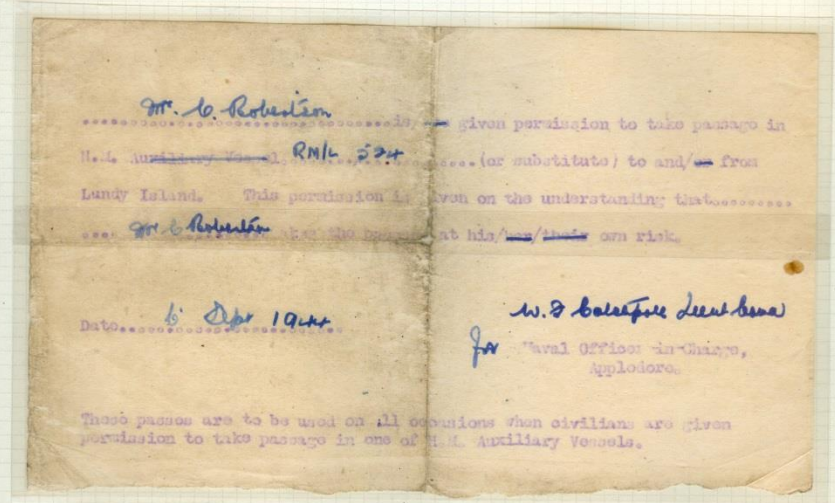 Mr. C. Robertson
........................................is/are given permission to take passage in
H.M. Auxiliary Vessel RM/L 524 .... (or substitute) to and/or from
Lundy Island. This permission is given on the understanding that..........
.... Mr C Robertson takes the passage at his/her/their own risk.
Date.... 6 Sept 1944
W. Lieut Comd
for Naval Officer-in-Charge,
Appledore.
These passes are to be used on all occasions when civilians are given
permission to take passage in one of H.M. Auxiliary Vessels.